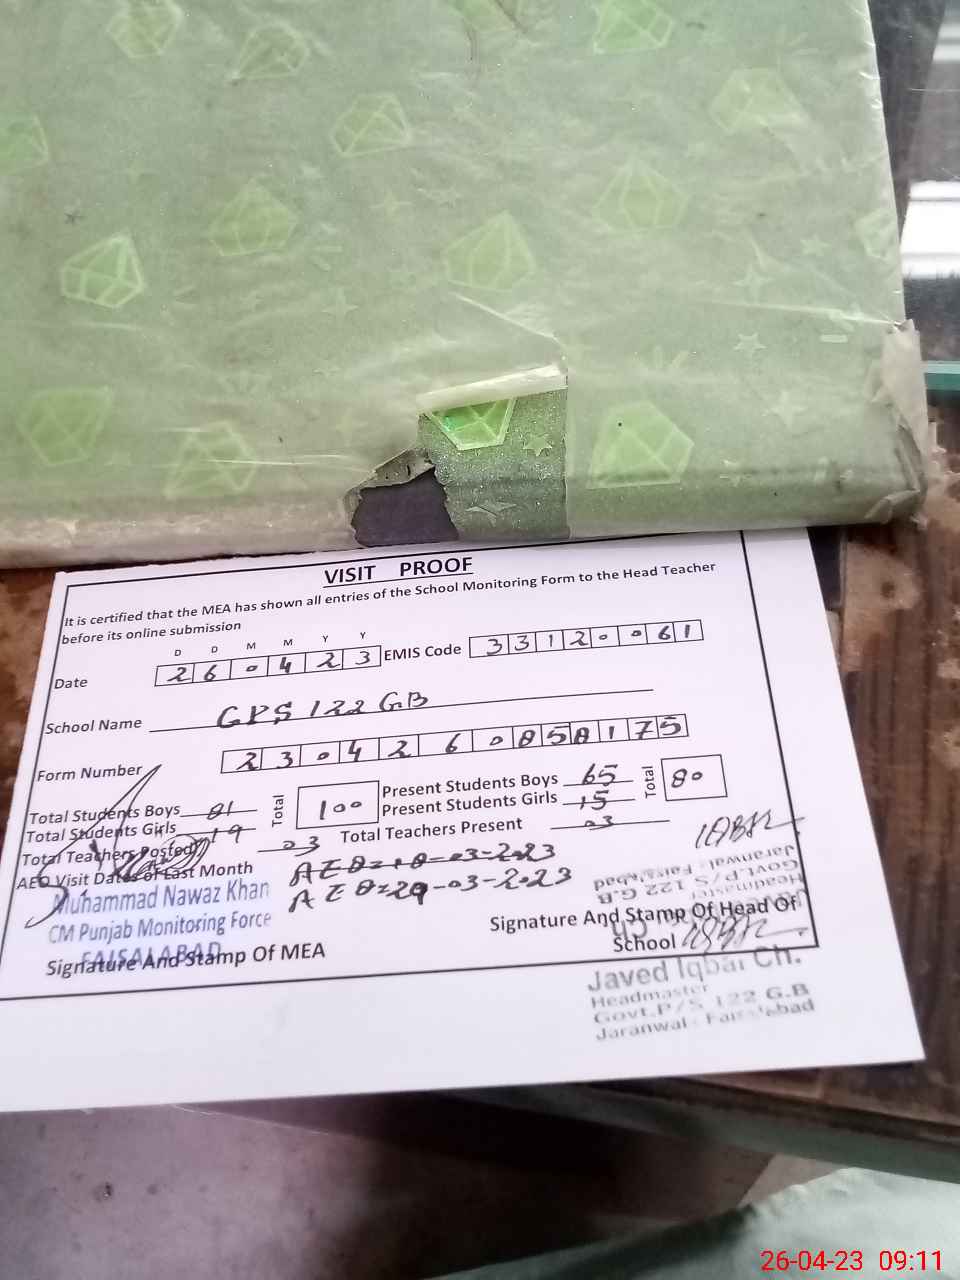 VISIT PROOF
It is certified that the MEA has shown all entries of the School Monitoring Form to the Head Teacher
before its online submission
D D M M Y Y
Date 26 04 23 EMIS Code 33120061
School Name GPS 122 GB
Form Number 2304260858175
Total Students Boys 81 Total 100 Present Students Boys 65 Total 80
Total Students Girls 19 Present Students Girls 15
Total Teachers Posted 03 Total Teachers Present 03
AEO Visit Dates of Last Month
29-03-2023
Muhammad Nawaz Khan
CM Punjab Monitoring Force
FAISALABAD
Signature And Stamp Of MEA
Headmaster
Govt.P/S 122 G.B
Jaranwala Faisalabad
Signature And Stamp Of Head Of
School
Javed Iqbal Ch.
Headmaster
Govt.P/S 122 G.B
Jaranwala Faisalabad
26-04-23 09:11